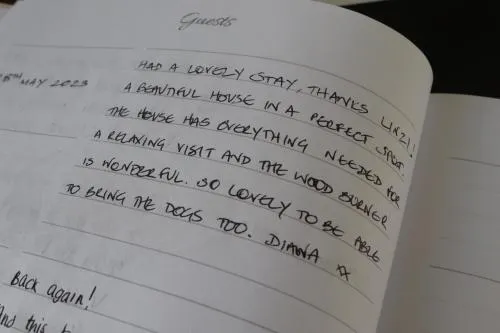 Guests
8TH MAY 2023
HAD A LOVELY STAY, THANKS LINZI!
A BEAUTIFUL HOUSE IN A PERFECT SPOT.
THE HOUSE HAS EVERYTHING NEEDED FOR
A RELAXING VISIT AND THE WOOD BURNER
IS WONDERFUL. SO LOVELY TO BE ABLE
TO BRING THE DOGS TOO. DIANA XX
BACK again!
And this